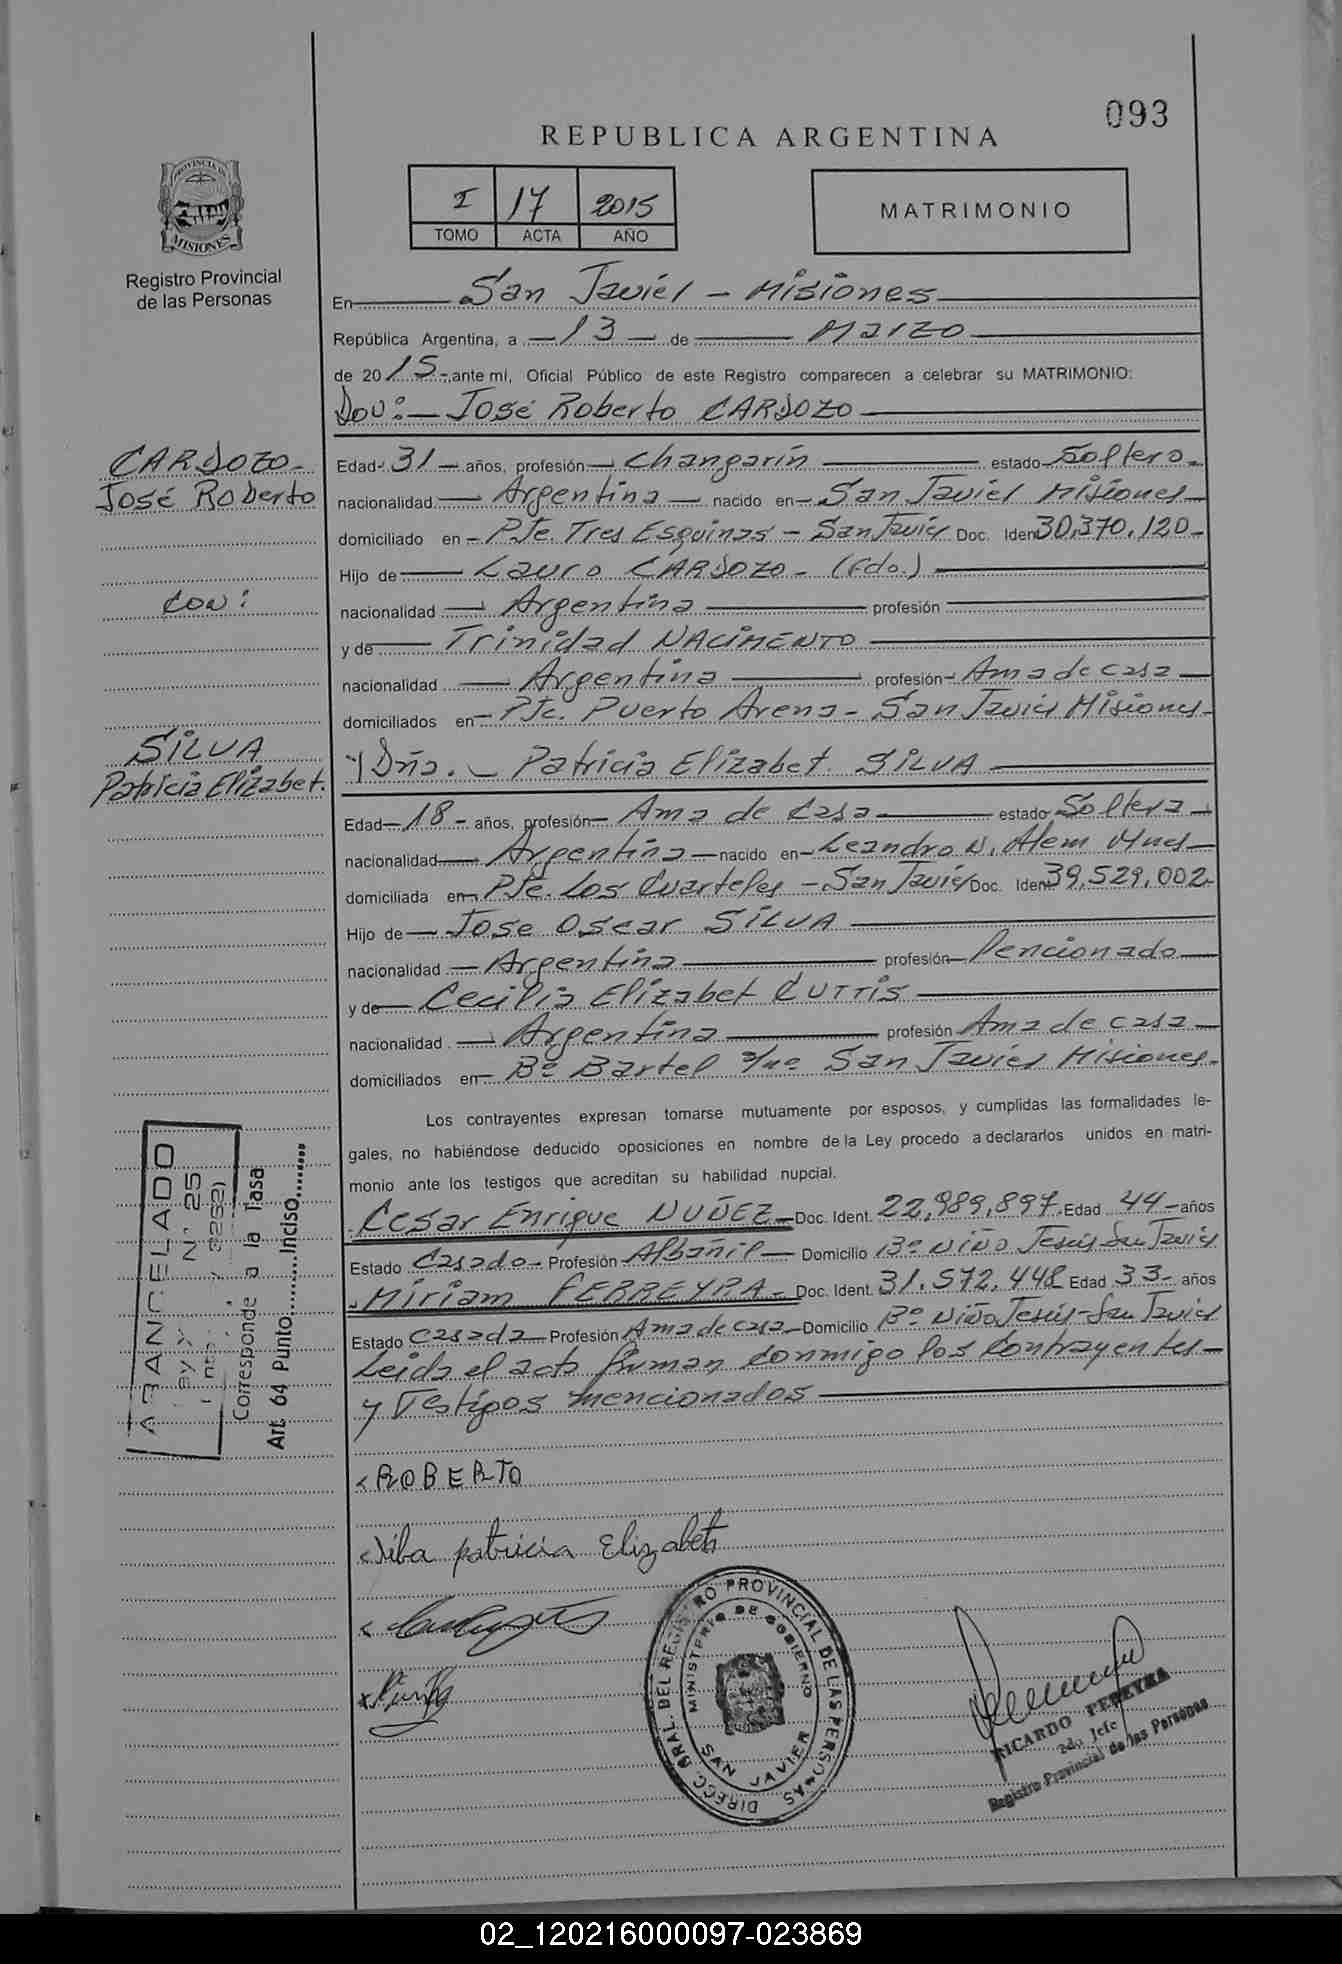 093
REPUBLICA ARGENTINA
I 17 2015
TOMO ACTA AÑO
MATRIMONIO
PROVINCIA DE MISIONES
Registro Provincial
de las Personas
En San Javier - Misiones
República Argentina, a 13 de Marzo
de 2015, ante mí, Oficial Público de este Registro comparecen a celebrar su MATRIMONIO:
Don: José Roberto CARDOZO
CARDOZO
José Roberto
Con:
SILVA
Patricia Elizabet.
Edad 31 años, profesión Changarín estado Soltero
nacionalidad Argentina nacido en San Javier Misiones
domiciliado en Pje. Tres Esquinas - San Javier Doc. Iden 30.370.120
Hijo de Lauro CARDOZO - (Fdo.)
nacionalidad Argentina profesión
y de Trinidad NACIMENTO
nacionalidad Argentina profesión Ama de casa
domiciliados en Pje. Puerto Arena - San Javier Misiones
Y Dña. Patricia Elizabet SILVA
Edad 18 años, profesión Ama de Casa estado Soltera
nacionalidad Argentina nacido en Leandro N. Alem Mnes
domiciliada en Pje. Los Cuarteles - San Javier Doc. Iden 39.529.002
Hijo de Jose Oscar SILVA
nacionalidad Argentina profesión Pencionado
y de Cecilia Elizabet CUTTIS
nacionalidad Argentina profesión Ama de casa
domiciliados en Bº Bartel s/nº San Javier Misiones.
Los contrayentes expresan tomarse mutuamente por esposos, y cumplidas las formalidades le-
gales, no habiéndose deducido oposiciones en nombre de la Ley procedo a declararlos unidos en matri-
monio ante los testigos que acreditan su habilidad nupcial.
Cesar Enrique NUÑEZ Doc. Ident. 22.989.897 Edad 44 años
Estado Casado Profesión Albañil Domicilio Bº Niño Jesús San Javier
Miriam FERREYRA Doc. Ident. 31.572.448 Edad 33 años
Estado Casada Profesión Ama de casa Domicilio Bº Niño Jesús - San Javier
Leida el acta firman conmigo los Contrayentes
y Testigos mencionados
ARANCELADO
LEY Nº 25
Corresponde a la Tasa
Art. 64 Punto........Inciso........
ROBERTO
Silba patricia Elizabeth
DIRECC. GRAL. DEL REGISTRO PROVINCIAL DE LAS PERSONAS
MINISTERIO DE GOBIERNO
SAN JAVIER
RICARDO PEREYRA
2do Jefe
Registro Provincial de las Personas
02_120216000097-023869